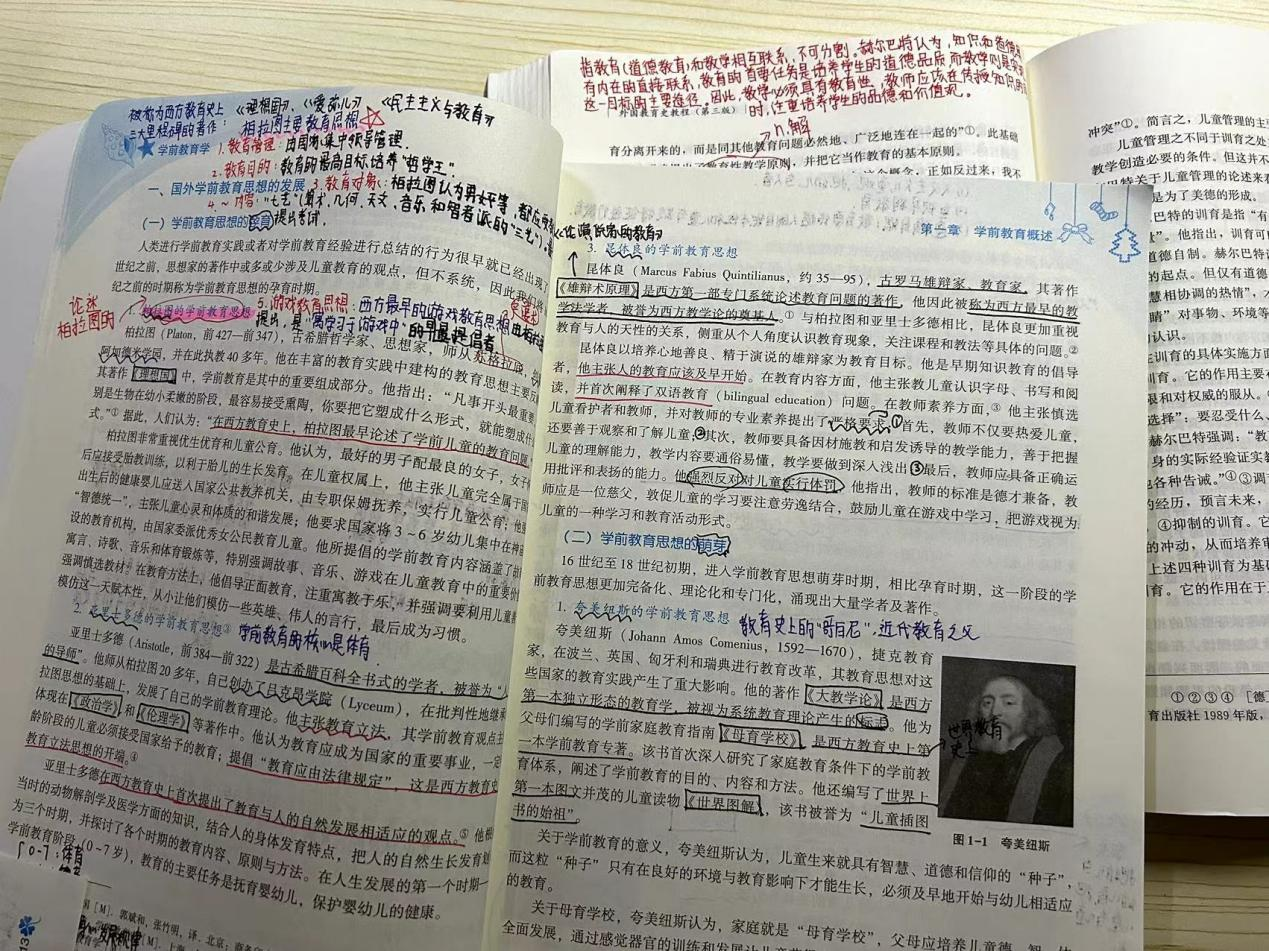 被称为西方教育史上
三大里程碑的著作：
《理想国》、《爱弥儿》《民主主义与教育》
柏拉图主要教育思想
学前教育学
1. 教育管理：由国家集中领导管理．
2. 教育目的：教育的最高目标培养“哲学王”．
一、国外学前教育思想的发展
3. 教育对象：柏拉图认为男女平等，都应
4. ～内容：“七艺”（算术，几何，天文，音乐和智者派的“三艺”），
（一）学前教育思想的孕育
提出考试．
人类进行学前教育实践或者对学前教育经验进行总结的行为很早就已经出现
世纪之前，思想家的著作中或多或少涉及儿童教育的观点，但不系统，因此我们
纪之前的时期称为学前教育思想的孕育时期。
论张
柏拉图的
1. 柏拉图的学前教育思想
5. 游戏教育思想：西方最早的游戏教育思想由柏拉图
提出，是“寓学习于游戏中”的最早提倡者
柏拉图（Platon，前427—前347），古希腊哲学家、思想家，师从苏格拉底，
阿加德米学园，并在此执教 40 多年。他在丰富的教育实践中建构的教育思想主要反
其著作《理想国》中，学前教育是其中的重要组成部分。他指出：“凡事开头最重要
别是生物在幼小柔嫩的阶段，最容易接受熏陶，你要把它塑成什么形式，就能塑成什
式。”① 据此，人们认为：“在西方教育史上，柏拉图最早论述了学前儿童的教育问题
柏拉图非常重视优生优育和儿童公育。他认为，最好的男子配最良的女子，女子
后应接受胎教训练，以利于胎儿的生长发育。在儿童权属上，他主张儿童完全属于国
出生后的健康婴儿应送入国家公共教养机关，由专职保姆抚养，实行儿童公育；他
“智德统一”，主张儿童心灵和体质的和谐发展；他要求国家将 3～6 岁幼儿集中在神庙
设的教育机构，由国家委派优秀女公民教育儿童。他所提倡的学前教育内容涵盖了讲
寓言、诗歌、音乐和体育锻炼等，特别强调故事、音乐、游戏在儿童教育中的重要价
强调慎选教材；在教育方法上，他倡导正面教育，注重寓教于乐，并强调要利用儿童
模仿这一天赋本性，从小让他们模仿一些英雄、伟人的言行，最后成为习惯。
2. 亚里士多德的学前教育思想③
学前教育的核心是体育．
亚里士多德（Aristotle，前 384—前 322）是古希腊百科全书式的学者，被誉为“
的导师”。他师从柏拉图 20 多年，自己创办了吕克昂学院（Lyceum），在批判性地继
拉图思想的基础上，发展了自己的学前教育理论。他主张教育立法，其学前教育观点主
体现在《政治学》和《伦理学》等著作中。他认为教育应成为国家的重要事业，一定
龄阶段的儿童必须接受国家给予的教育；提倡“教育应由法律规定”，这是西方教育史
教育立法思想的开端。④
亚里士多德在西方教育史上首次提出了教育与人的自然发展相适应的观点。⑤ 他根
当时的动物解剖学及医学方面的知识，结合人的身体发育特点，把人的自然生长发育
为三个时期，并探讨了各个时期的教育内容、原则与方法。在人生发展的第一个时期——
学前教育阶段（0～7 岁），教育的主要任务是抚育婴幼儿，保护婴幼儿的健康。
0-7：体育
[M]. 郭斌和，张竹明，译. 北京：商务
13
指教育（道德教育）和教学相互联系，不可分割。赫尔巴特认为，知识和道德
有内在的直接联系，教育的首要任务是培养学生的道德品质，而教学则是实
这一目标的主要途径。因此，教学必须具有教育性，教师应该在传授知识的
时，注重培养学生的品德和价值观。
外国教育史教程（第三版）
n.解
育分离开来的，而是同其他教育问题必然地、广泛地连在一起的”①。此基础
教育性教学原则，并把它当作教育的基本原则。
这个概念，正如反过来，我不
《论演说者的教育》
第一章 学前教育概述
3. 昆体良的学前教育思想
昆体良（Marcus Fabius Quintilianus，约 35—95），古罗马雄辩家、教育家，其著作
《雄辩术原理》是西方第一部专门系统论述教育问题的著作，他因此被称为西方最早的教
学法学者，被誉为西方教学论的奠基人。① 与柏拉图和亚里士多德相比，昆体良更加重视
教育与人的天性的关系，侧重从个人角度认识教育现象，关注课程和教法等具体的问题。②
昆体良以培养心地善良、精于演说的雄辩家为教育目标。他是早期知识教育的倡导
者，他主张人的教育应该及早开始。在教育内容方面，他主张教儿童认识字母、书写和阅
读，并首次阐释了双语教育（bilingual education）问题。在教师素养方面，③ 他主张慎选
儿童看护者和教师，并对教师的专业素养提出了严格要求①首先，教师不仅要热爱儿童，
还要善于观察和了解儿童②其次，教师要具备因材施教和启发诱导的教学能力，善于把握
儿童的理解能力，教学内容要通俗易懂，教学要做到深入浅出③最后，教师应具备正确运
用批评和表扬的能力。他强烈反对对儿童实行体罚。他指出，教师的标准是德才兼备，教
师应是一位慈父，敦促儿童的学习要注意劳逸结合，鼓励儿童在游戏中学习，把游戏视为
儿童的一种学习和教育活动形式。
（二）学前教育思想的萌芽
16 世纪至 18 世纪初期，进入学前教育思想萌芽时期，相比孕育时期，这一阶段的学
前教育思想更加完备化、理论化和专门化，涌现出大量学者及著作。
1. 夸美纽斯的学前教育思想
教育史上的“哥白尼”．近代教育之父
夸美纽斯（Johann Amos Comenius，1592—1670），捷克教育
家，在波兰、英国、匈牙利和瑞典进行教育改革，其教育思想对这
些国家的教育实践产生了重大影响。他的著作《大教学论》是西方
第一本独立形态的教育学，被视为系统教育理论产生的标志。他为
父母们编写的学前家庭教育指南《母育学校》，是西方教育史上第
一本学前教育专著。该书首次深入研究了家庭教育条件下的学前教
育体系，阐述了学前教育的目的、内容和方法。他还编写了世界上
第一本图文并茂的儿童读物《世界图解》，该书被誉为“儿童插图
书的始祖”
世界教育
史上
图 1-1 夸美纽斯
关于学前教育的意义，夸美纽斯认为，儿童生来就具有智慧、道德和信仰的“种子”，
而这粒“种子”只有在良好的环境与教育影响下才能生长，必须及早地开始与幼儿相适应
的教育。
关于母育学校，夸美纽斯认为，家庭就是“母育学校”，父母应培养儿童德、智、体
全面发展，通过感觉器官的训练和发展让儿童
冲突”①。简言之，儿童管理的主
儿童管理之不同于训育之处
教学创造必要的条件。但这并不
巴特关于儿童管理的论述来看
是为了美德的形成。
巴特的训育是指“有
。他指出，训育可
道德自制。赫尔巴特
的起点。但仅有道德
慧相协调的热情”，才
睛”对事物、环境等
认识。
训育的具体实施方面
育。它的作用主要
限和对权威的服从。
选择”；要忍受什么、
赫尔巴特强调：“教
身的实际经验证实教
各种告诫。”④③调
的经历，预言未来，
④抑制的训育。它
的冲动，从而培养审
上述四种训育为基础
育。它的作用在于
①②③④［德］
育出版社 1989 年版，